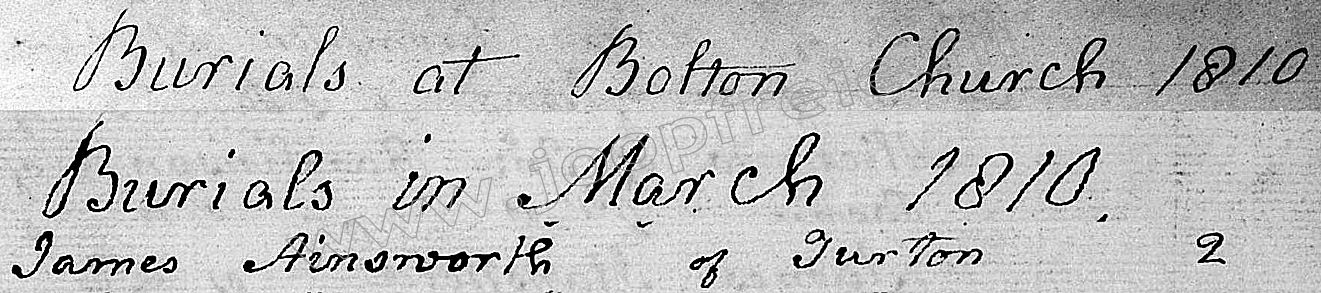 Burials at Bolton Church 1810
Burials in March 1810.
James Ainsworth of Turton 2